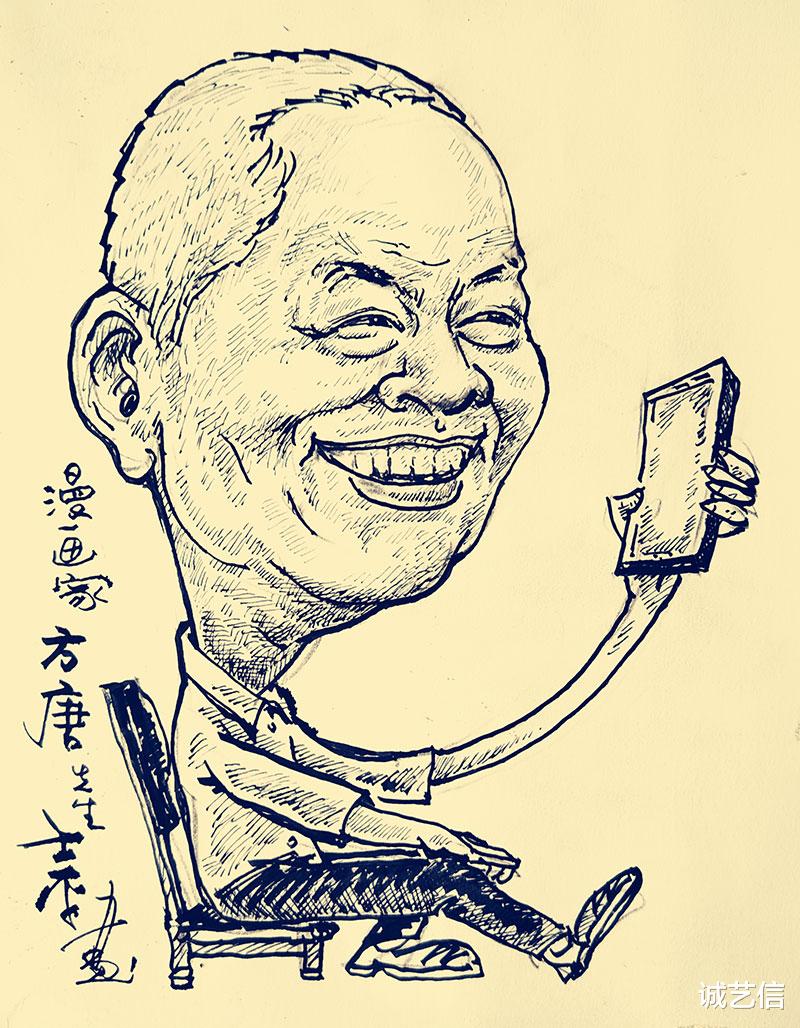 漫画家方唐先生
画
诚艺信